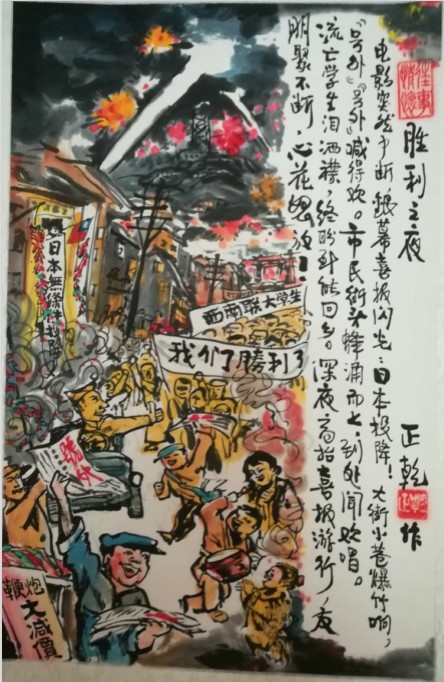 胜利之夜
电影突然中断,银幕喜报闪光:日本投降!大街小巷爆竹响,
"号外""号外"喊得欢。市民街头蜂涌而上,到处闻欢唱。
流亡学生泪洒襟,终盼到能回乡。深夜高抬喜报游行,友
朋聚不断,心花怒放!
正乾作
日本無條件投降
西南联大学生
我们了勝利了
號外
鞭炮
大減價